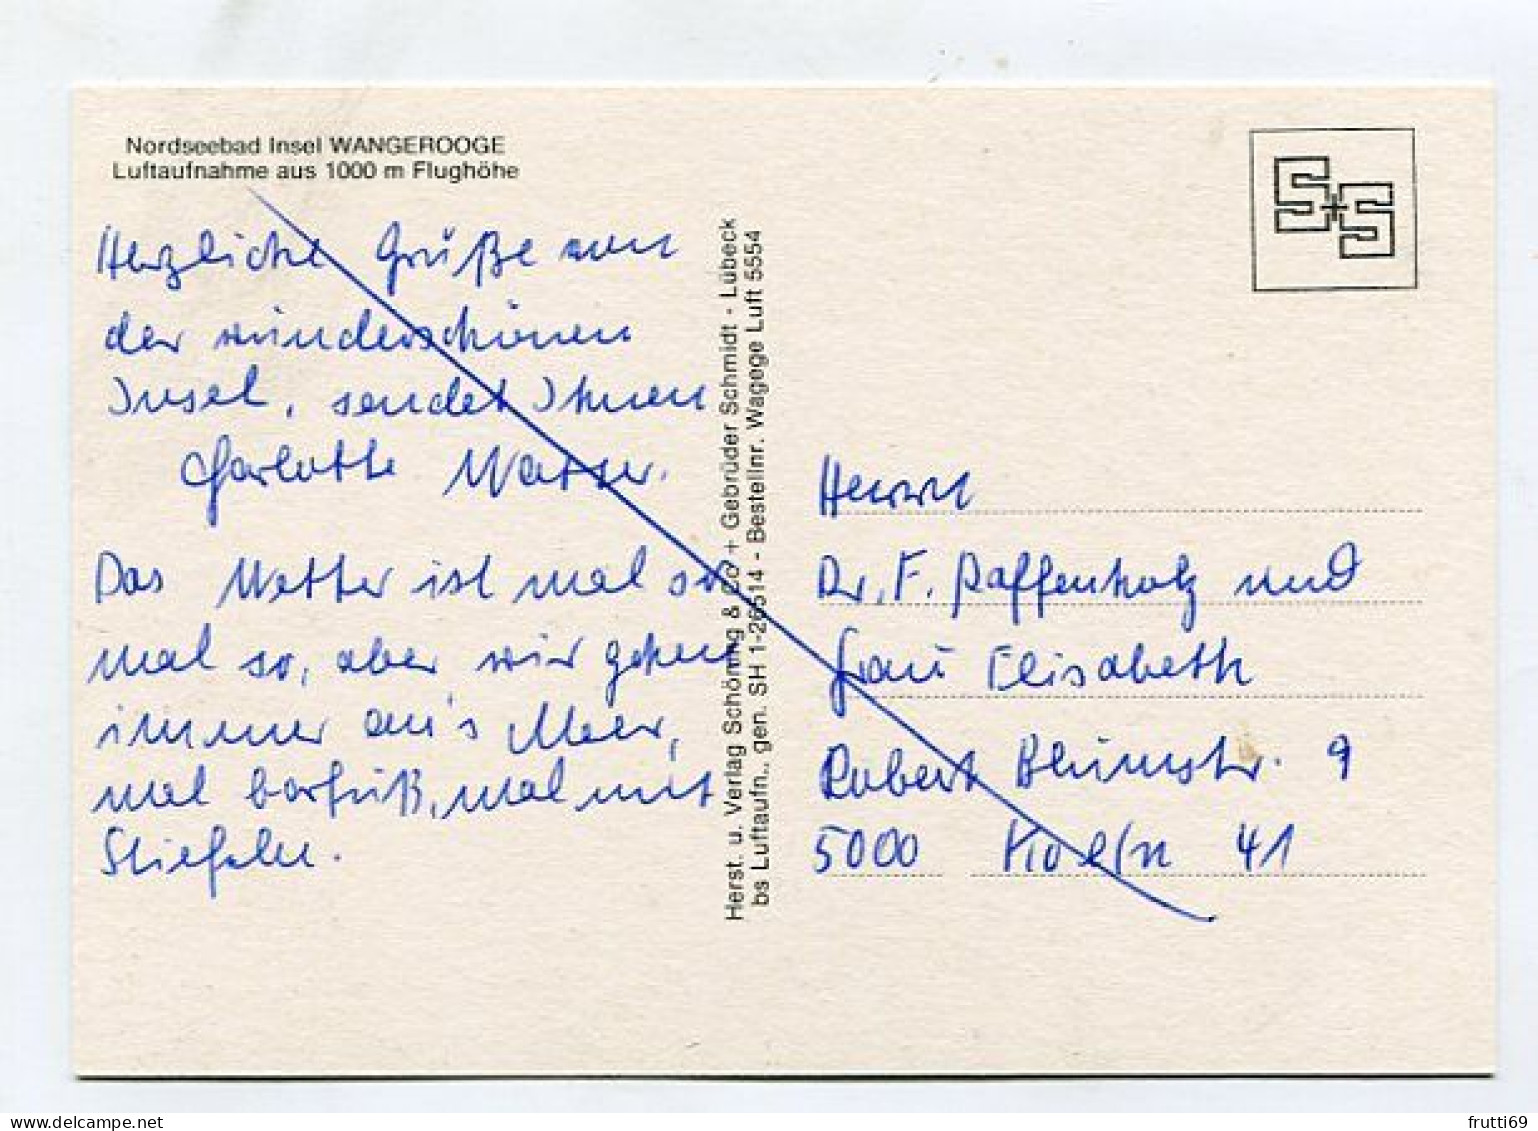 Nordseebad Insel WANGEROOGE
Luftaufnahme aus 1000 m Flughöhe
Herzliche Grüße von
der wunderschönen
Insel, sendet Ihnen
Charlotte
Das Wetter ist mal so
mal so, aber wir gehen
immer an's Meer,
mal barfuß, mal mit
Stiefeln.
Herst. u. Verlag Schöning & Co + Gebrüder Schmidt - Lübeck
bs Luftaufn., gen. SH 1-26514 - Bestellnr. Wagege Luft 5554
S+S
Herrn
Dr. F. Paffenholz und
Frau Elisabeth
Robert Blumstr. 9
5000 Koeln 41
delcampe.net
frutti69